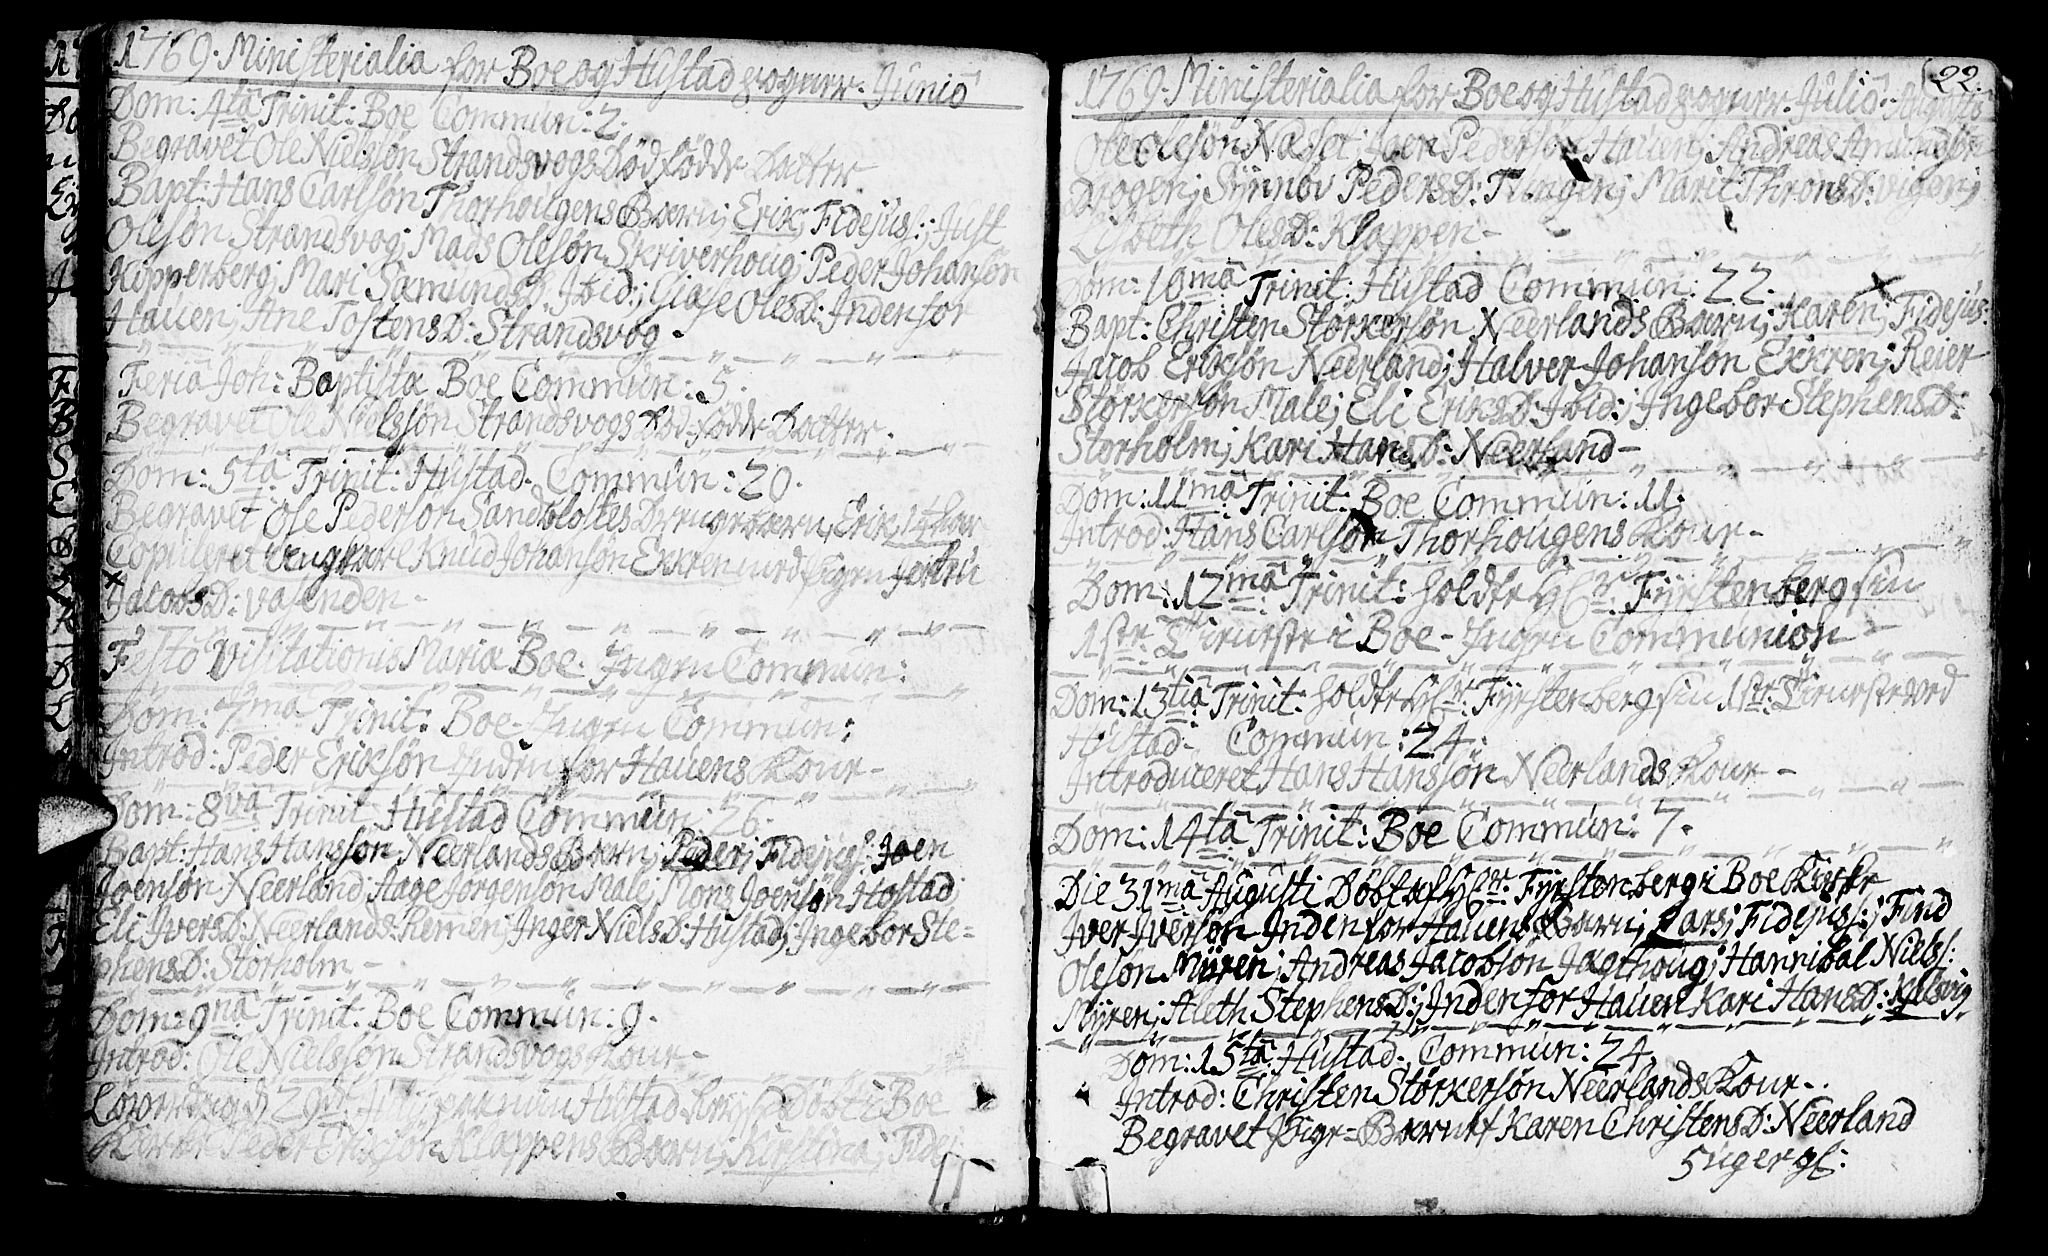 1769. Ministerialia for Boe og Hüstad Sogner. Junio
Dom: 4ta Trinit: Boe Commun: 2.
Begravet Ole Nielssøn Strandsvogs dødfødde Datter.
Bapt: Hans Carlssøn Thorhougens Barn; Erik; Fidejuss: Just
Olesøn Strandsvog; Mads Olesøn Skriverhoug; Peder Johansøn
Kopperberg; Mari Sæmunds D: Ibid:; Giøse Oles D: Inden for
Hauen; Ane Tostens D: Strandsvog.
Feria Joh: Baptistæ Boe Commun: 5.
Begravet Ole Nielssøn Strandsvogs dødfødde Datter.
Dom: 5ta Trinit: Hüstad. Commun: 20.
Begravet Ole Pedersøn Sandblostes Drengebarn, Erik, 1/4 Aar
Copuleret Ungkarl Knud Johansøn Exren med Pigen
Jacobs D: Vasenden.
Festo Visitationis Mariæ Boe. Ingen Commun:
Dom: 7ma Trinit: Boe. Ingen Commun:
Introd: Peder Eriksøn Inden for Hauens Kone.
Dom: 8va Trinit. Hüstad Commun: 26.
Bapt: Hans Hanssøn Neerlands Barn; Peder; Fidejuss: Joen
Joensøn Neerland; Aage Jørgensøn Male; Mons Joensøn Hostad
Eli Ivers D: Neerlands-Remen; Inger Niels D: Hustad; Ingebor Ste-
phens D: Storholm.
Dom: 9na Trinit: Boe Commun: 9.
Introd: Ole Nielssøn Strandsvogs Kone.
Løverdag d 29de Julii Hüstad Døbt i Boe
Kirke Peder Erikssøn Klappens Barn; Kirstina; Fidej
22.
1769. Ministerialia for Boe og Hüstad Sogner. Julio. Augusto
Ole Olesøn Nasset; Joen Pedersøn Hauen; Andreas Amundsøn
Drogen; Synnøv Peders D: Tungen; Marit Throns D: Vigen;
Lisbeth Oles D: Klappen.
Dom: 10ma Trinit: Hüstad Commun: 22.
Bapt: Christen Størkersøn Neerlands Barn; Karen; Fidejus:
Jacob Eriksøn Neerland; Halver Johansøn Exkren; Reier
Størkersøn Male; Eli Eriks D: Ibid:; Ingebor Stephens D:
Storholm; Kari Hans D: Neerland.
Dom: 11ma Trinit: Boe Commun: 11.
Introd: Hans Carlsøn Thorhougens Kone.
Dom: 12ma Trinit: holdte Hr: Fÿrstenberg sin
1ste Tieneste i Boe. Ingen Communion
Dom: 13tia Trinit: holdte Hr: Fÿrstenberg sin 1ste Tieneste ved
Hüstad. Commun: 24.
Introduceret Hans Hanssøn Neerlands Kone.
Dom: 14ta Trinit: Boe Commun: 7.
Die 31ma Augusti Døbte Hr: Fÿrstenberg i Boe Kirke
Iver Iversøn Inden for Hauens Barn; Lars; Fidejuss: Find
Olesøn Mÿren; Andreas Jacobsøn Jagthoug; Hannibal Niels:
Mÿren; Aleth Stephens D:; Inden for Hauen Kari Hans D: Nÿsvig.
Dom: 15ta Hüstad. Commun: 24.
Introd: Christen Størkersøn Neerlands Kone.
Begravet Pige-Barnet Karen Christens D: Neerland
5 Uger gl: